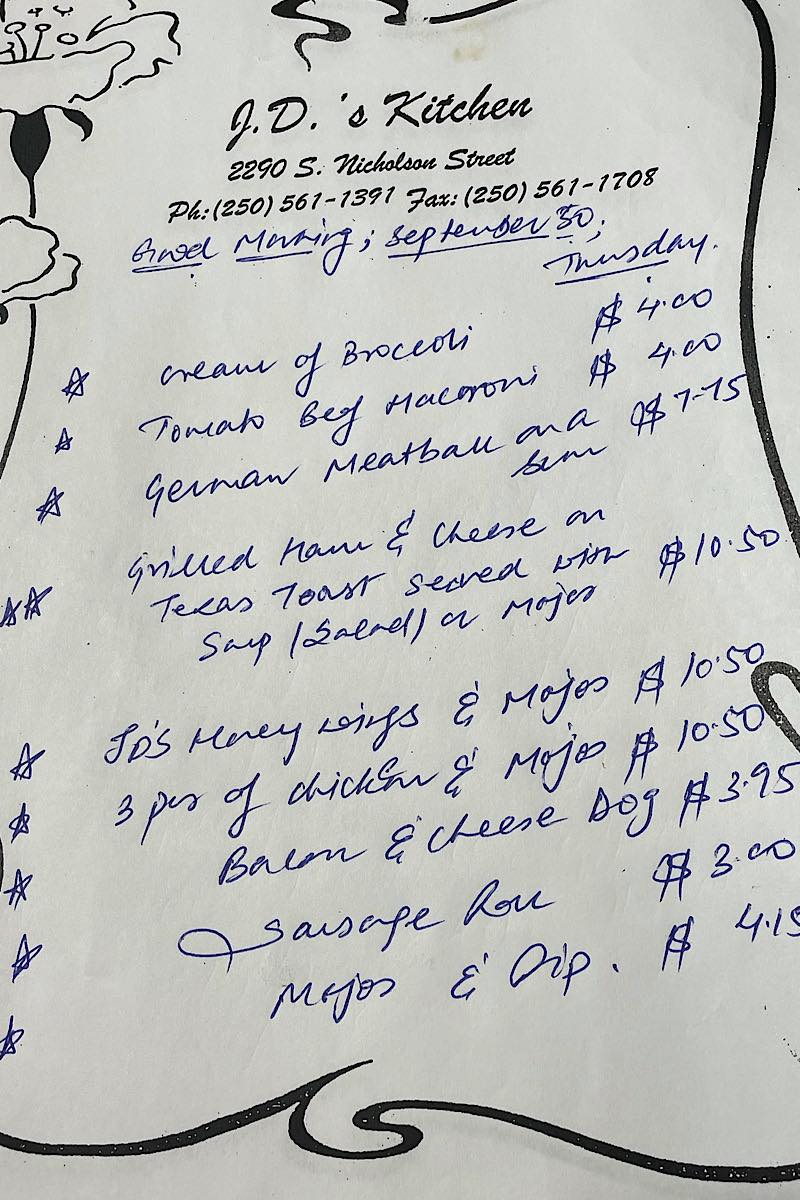 J.D.'s Kitchen
2290 S. Nicholson Street
Ph:(250) 561-1391 Fax: (250) 561-1708
Good Morning; September 30;
Thursday.
Cream of Broccoli $ 4.00
Tomato Beef Macaroni $ 4.00
German Meatball on a $ 7.75
bun
Grilled Ham & Cheese on
Texas Toast served with $ 10.50
Soup (Salad) or Mojos
JD'S Honey wings & Mojos $ 10.50
3 pcs of chicken & Mojos $ 10.50
Bacon & Cheese Dog $ 3.95
Sausage Roll $ 3.00
Mojos & Dip. $ 4.15